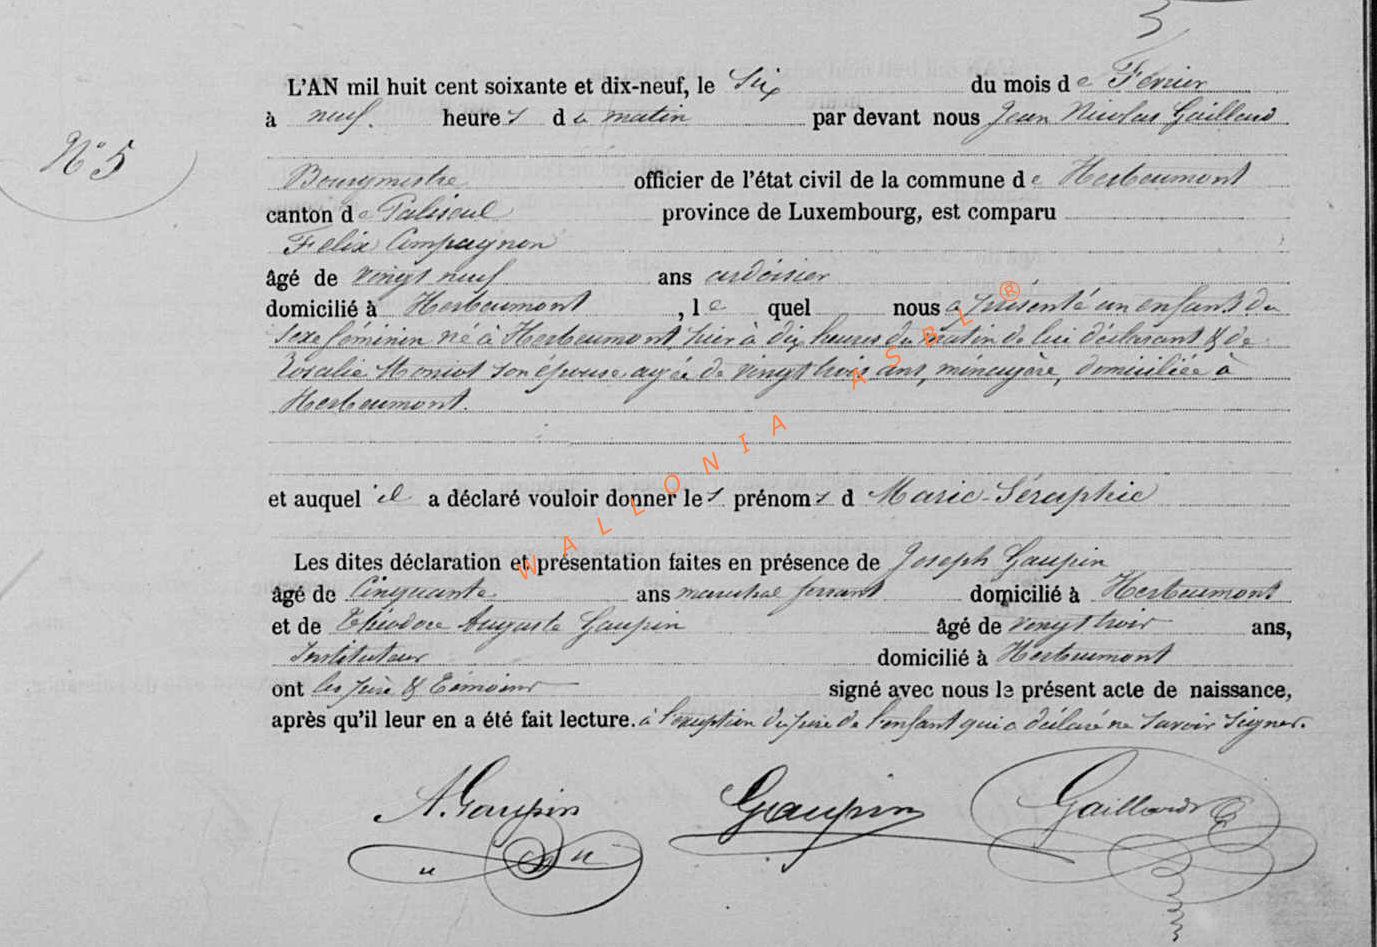 5
L'AN mil huit cent soixante et dix-neuf, le Six du mois de Février
à neuf heures du matin par devant nous Jean Nicolas Gaillard
N° 5
Bourgmestre officier de l'état civil de la commune de Herbeumont
canton de Paliseul province de Luxembourg, est comparu
Felix Compagnon
âgé de vingt neuf ans ardoisier
domicilié à Herbeumont, lequel nous a présenté un enfant du
sexe féminin né à Herbeumont, hier à dix heures du matin de lui déclarant & de
Rosalie Moniot son épouse agée de vingt trois ans, ménagère, domiciliée à
Herbeumont.
et auquel il a déclaré vouloir donner les prénoms d Marie-Séraphie
Les dites déclaration et présentation faites en présence de Joseph Gaupin
âgé de Cinquante ans marechal ferrant domicilié à Herbeumont
et de Théodore Auguste Gaupin âgé de vingt trois ans,
Instituteur domicilié à Herbeumont
ont les père & témoins signé avec nous le présent acte de naissance,
après qu'il leur en a été fait lecture. à l'exception du père de l'enfant qui a déclaré ne savoir signer.
A. Gaupin Gaupin Gaillard
WALLONIA ASBL ®